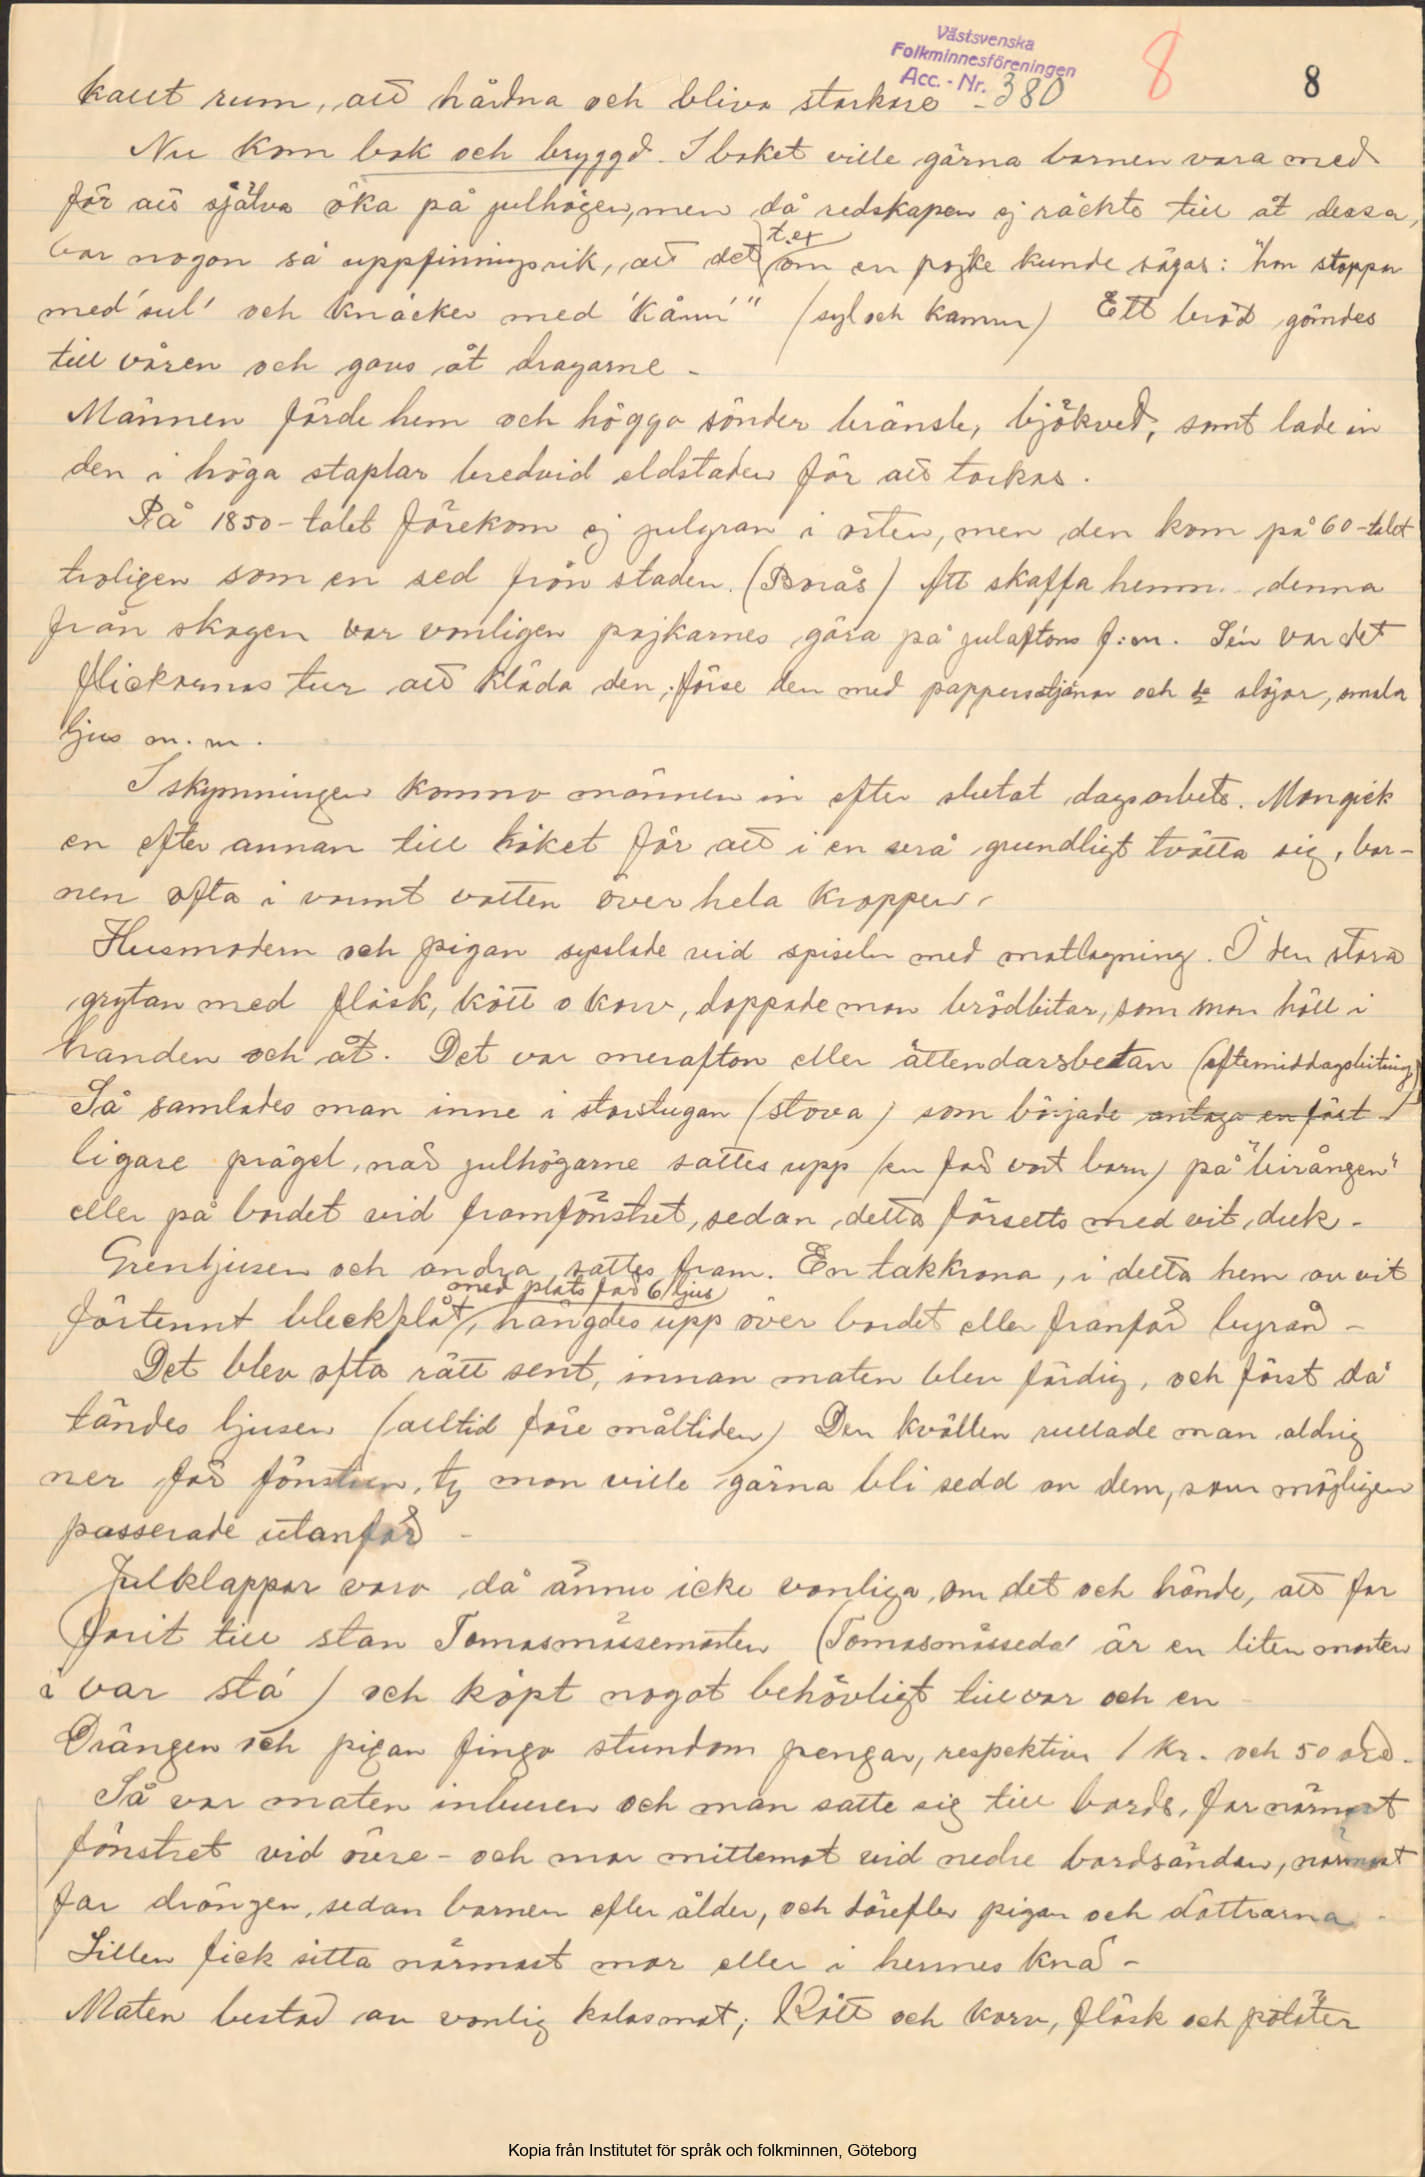 Västsvenska
Folkminnesföreningen
Acc. - Nr. 380
8
8
kallt rum, att hårdna och bliva starkare
Nu kom bak och bryggd. I baket ville gärna barnen vara med
för att själva öka på julhögen, men då redskapen ej räckte till åt dessa,
var nogon så uppfinningsrik, att det t.ex om en pojke kunde sägas: "han stoppar
med 'sul' och knäcker med 'kåmm'" (syl och kamm) Ett bröd gömdes
till våren och gavs åt dragarne -
Männen förde hem och höggo sönder bränsle, björkved, samt lade in
den i höga staplar bredvid eldstaden för att torkas.
På 1850-talet förekom ej julgran i orten, men den kom på 60-talet
troligen som en sed från staden. (Borås) Att skaffa hem denna
från skogen var vanligen pojkarnes göra på julaftons f:m. Sén var det
flickornas tur att kläda den, förse den med pappersstjärnor och slöjor, smala
ljus m. m.
I skymningen kommo männen in efter slutat dagsarbete. Man gick
en efter annan till köket för att i en vrå grundligt tvätta sig, bar-
nen ofta i varmt vatten över hela kroppen.
Husmodern och pigan sysslade vid spiseln med matlagning. I den stora
grytan med fläsk, kött o korv, doppade man brödbitar, som man höll i
handen och åt. Det var merafton eller ättendarsbetan (eftemiddagsbitning)
Så samlades man inne i storstugan (stova) som började antaga en fäst-
ligare prägel, när julhögarne sattes upp (en för vart barn) på "birången"
eller på bordet vid framfönstret, sedan detta försetts med vit duk -
Grenljusen och andra sattes fram. En takkrona, i detta hem av vit
med plats för 6 ljus
förtennt bleckplåt, hängdes upp över bordet eller framför byrån -
Det blev ofta rätt sent, innan maten blev färdig, och först då
tändes ljusen (alltid före måltiden) Den kvällen rullade man aldrig
ner för fönstren, ty man ville gärna bli sedd av dem, som möjligen
passerade utanför -
Julklappar voro då ännu icke vanliga, om det och hände, att far
farit till stan Tomasmässemarten (Tomasmässeda' är en liten marten
i var stá) och köpt nogot behövligt till var och en -
Drängen och pigan fingo stundom pengar, respektive 1 kr. och 50 öre.
Så var maten inburen och man satte sig till bords, far närmast
fönstret vid övre- och mor mittemot vid nedre bordsändan, närmast
far drängen, sedan barnen efter ålder, och därefter pigan och döttrarna -
Lillen fick sitta närmast mor eller i hennes knä -
Maten bestod av vanlig kalasmat; Kött och korv, fläsk och potäter
Kopia från Institutet för språk och folkminnen, Göteborg